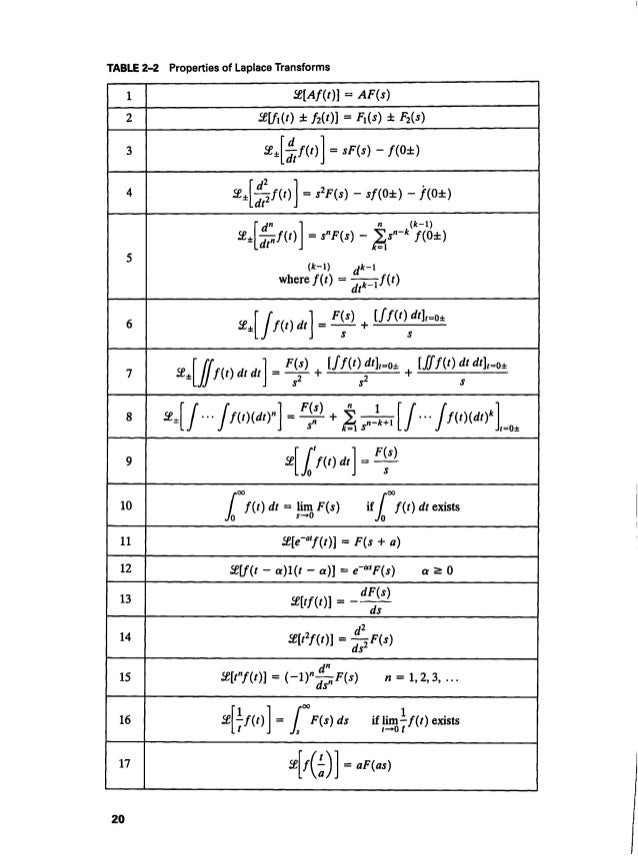 TABLE 2–2 Properties of Laplace Transforms
1 ℒ[Af(t)] = AF(s)
2 ℒ[f₁(t) ± f₂(t)] = F₁(s) ± F₂(s)
3 ℒ±[d/dt f(t)] = sF(s) − f(0±)
4 ℒ±[d²/dt² f(t)] = s²F(s) − sf(0±) − ḟ(0±)
5 ℒ±[dⁿ/dtⁿ f(t)] = sⁿF(s) − ∑ₖ₌₁ⁿ sⁿ⁻ᵏ f^(k−1)(0±)
where f^(k−1)(t) = dᵏ⁻¹/dtᵏ⁻¹ f(t)
6 ℒ±[∫ f(t) dt] = F(s)/s + [∫ f(t) dt]ₜ₌₀±/s
7 ℒ±[∬ f(t) dt dt] = F(s)/s² + [∫ f(t) dt]ₜ₌₀±/s² + [∬ f(t) dt dt]ₜ₌₀±/s
8 ℒ±[∫ ··· ∫ f(t)(dt)ⁿ] = F(s)/sⁿ + ∑ₖ₌₁ⁿ 1/sⁿ⁻ᵏ⁺¹ [∫ ··· ∫ f(t)(dt)ᵏ]ₜ₌₀±
9 ℒ[∫₀ᵗ f(t) dt] = F(s)/s
10 ∫₀^∞ f(t) dt = lim s→0 F(s) if ∫₀^∞ f(t) dt exists
11 ℒ[e^(−at) f(t)] = F(s + a)
12 ℒ[f(t − α)1(t − α)] = e^(−αs)F(s) α ≥ 0
13 ℒ[tf(t)] = −dF(s)/ds
14 ℒ[t²f(t)] = d²/ds² F(s)
15 ℒ[tⁿf(t)] = (−1)ⁿ dⁿ/dsⁿ F(s) n = 1, 2, 3, ...
16 ℒ[1/t f(t)] = ∫ₛ^∞ F(s) ds if lim t→0 1/t f(t) exists
17 ℒ[f(t/a)] = aF(as)
20